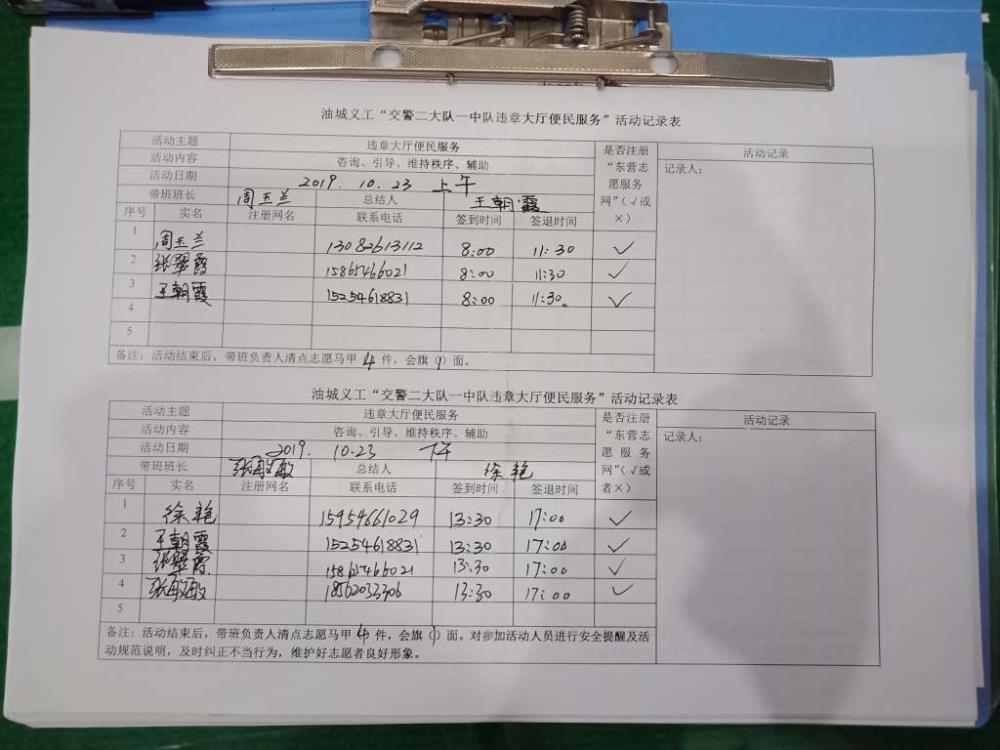 油城义工“交警二大队一中队违章大厅便民服务”活动记录表
活动主题 违章大厅便民服务 是否注册“东营志愿服务网”(√或×) 活动记录
活动内容 咨询、引导、维持秩序、辅助 记录人:
活动日期 2019. 10. 23 上午
带班班长 周玉兰 总结人 王朝霞
序号 实名 注册网名 联系电话 签到时间 签退时间
1 周玉兰 13082613112 8:00 11:30 ✓
2 张翠霞 15865466021 8:00 11:30 ✓
3 王朝霞 15254618831 8:00 11:30 ✓
4
5
备注:活动结束后,带班负责人清点志愿马甲 4 件,会旗 1 面。
油城义工“交警二大队一中队违章大厅便民服务”活动记录表
活动主题 违章大厅便民服务 是否注册“东营志愿服务网”(√或者×) 活动记录
活动内容 咨询、引导、维持秩序、辅助 记录人:
活动日期 2019. 10.23 下午
带班班长 总结人 徐艳
序号 实名 注册网名 联系电话 签到时间 签退时间
1 徐艳 15954661029 13:30 17:00 ✓
2 王朝霞 15254618831 13:30 17:00 ✓
3 张翠霞 15865466021 13:30 17:00 ✓
4 18562033306 13:30 17:00 ✓
5
备注:活动结束后,带班负责人清点志愿马甲 4 件,会旗 1 面。对参加活动人员进行安全提醒及活
动规范说明,及时纠正不当行为,维护好志愿者良好形象。